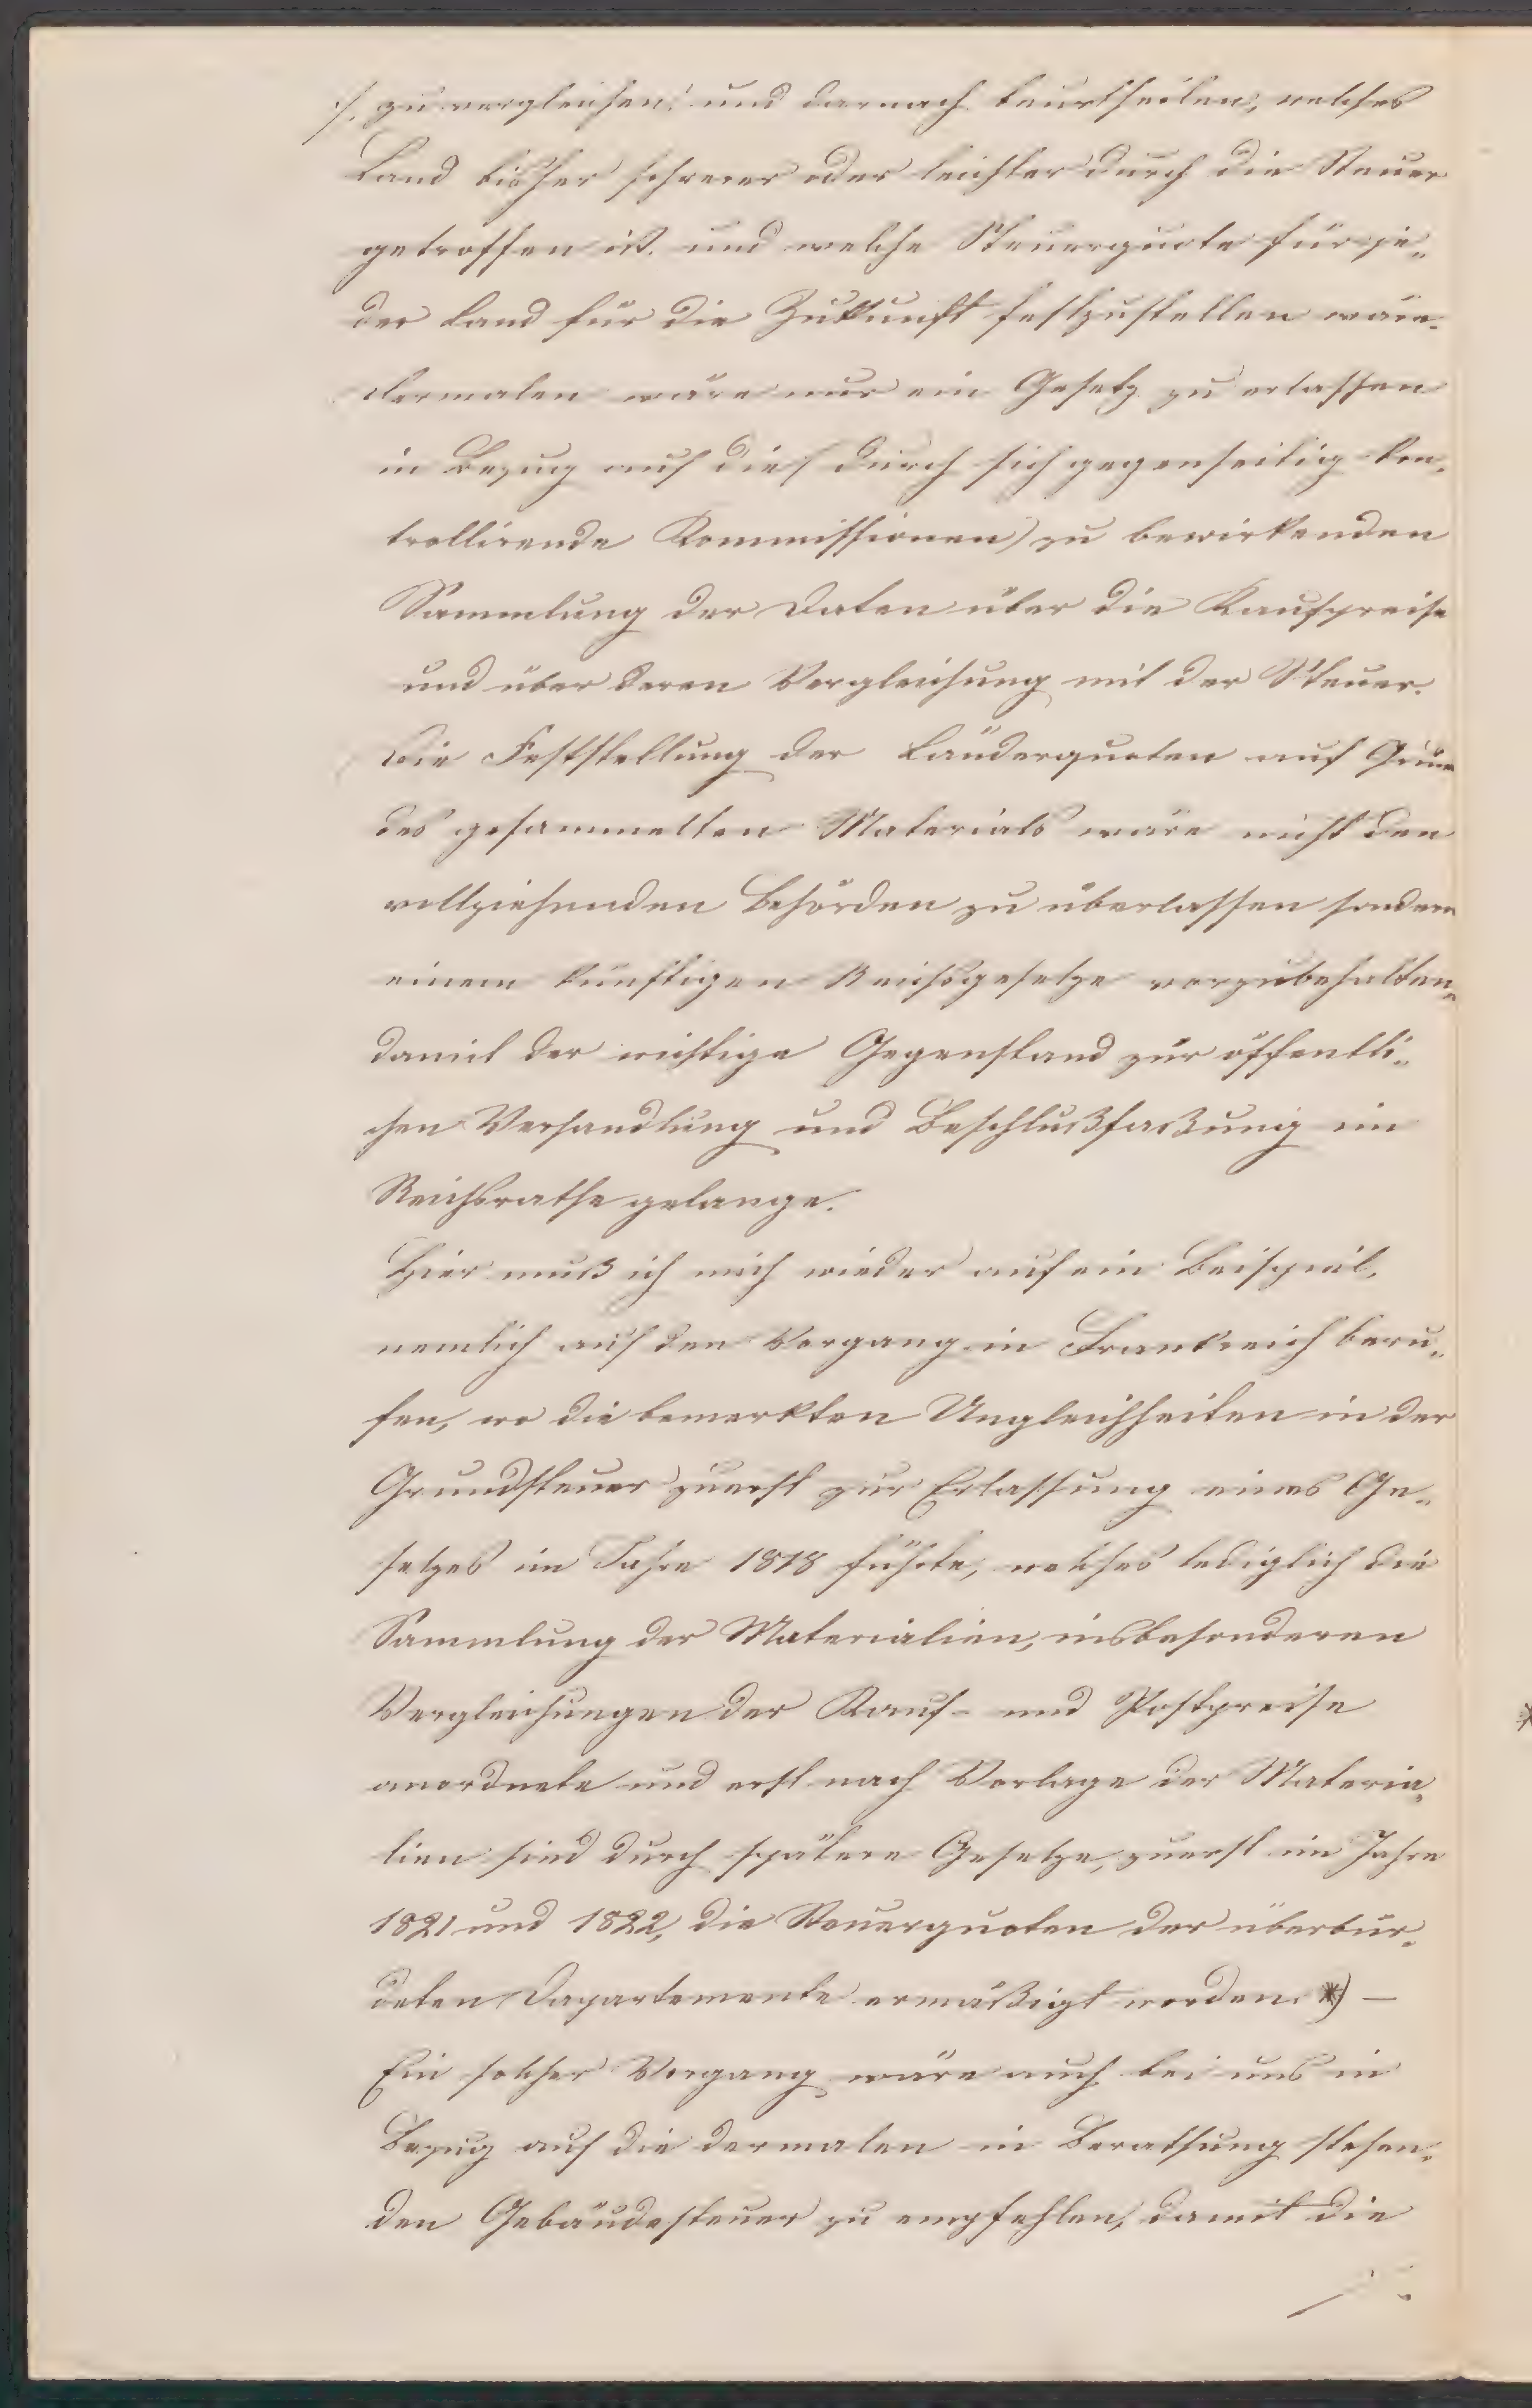 ./. zu vergleichen und darnach beurtheilen, welches
Land bisher schwerer oder leichter durch die Steuer
getroffen ist und welche Steuerquote für je„
des Land für die Zukunft festzustellen wäre.
Dermalen wäre nur ein Gesetz zu erlassen
in Bezug auf die (durch sich gegenseitig kon„
trollirende Kommissionen) zu bewirkenden
Sammlung der Daten über die Kaufpreise
und über deren Vergleichung mit der Steuer.
Die Feststellung der Länderquoten auf Grun
des gesammelten Materials wäre nicht den
vollziehenden Behörden zu überlassen sondern
einem künftigen Reichsgesetze vorzubehalten„
damit der wichtige Gegenstand zur öffentli„
chen Verhandlung und Beschlußfaßung im
Reichsrathe gelange.
Hier muß ich mich wieder auf ein Beispiel,
nemlich auf den Vorgang in Frankreich beru„
fen, wo die bemerkten Ungleichheiten in der
Grundsteuer zuerst zur Erlassung eines Ge„
setzes im Jahre 1818 führte, welches lediglich die
Sammlung der Materialien, insbesonderen
Vergleichungen der Kauf- und Pachtpreise
anordnete und erst nach Vorlage der Materia„
lien sind durch spätere Gesetze, zuerst im Jahre
1821 und 1822, die Steuerquoten der überbür„
deten Departemente ermäßigt worden. *) —
Ein solcher Vorgang wäre auch bei uns in
Bezug auf die dermalen in Berathung stehen„
den Gebäudesteuer zu empfehlen, damit die
./.